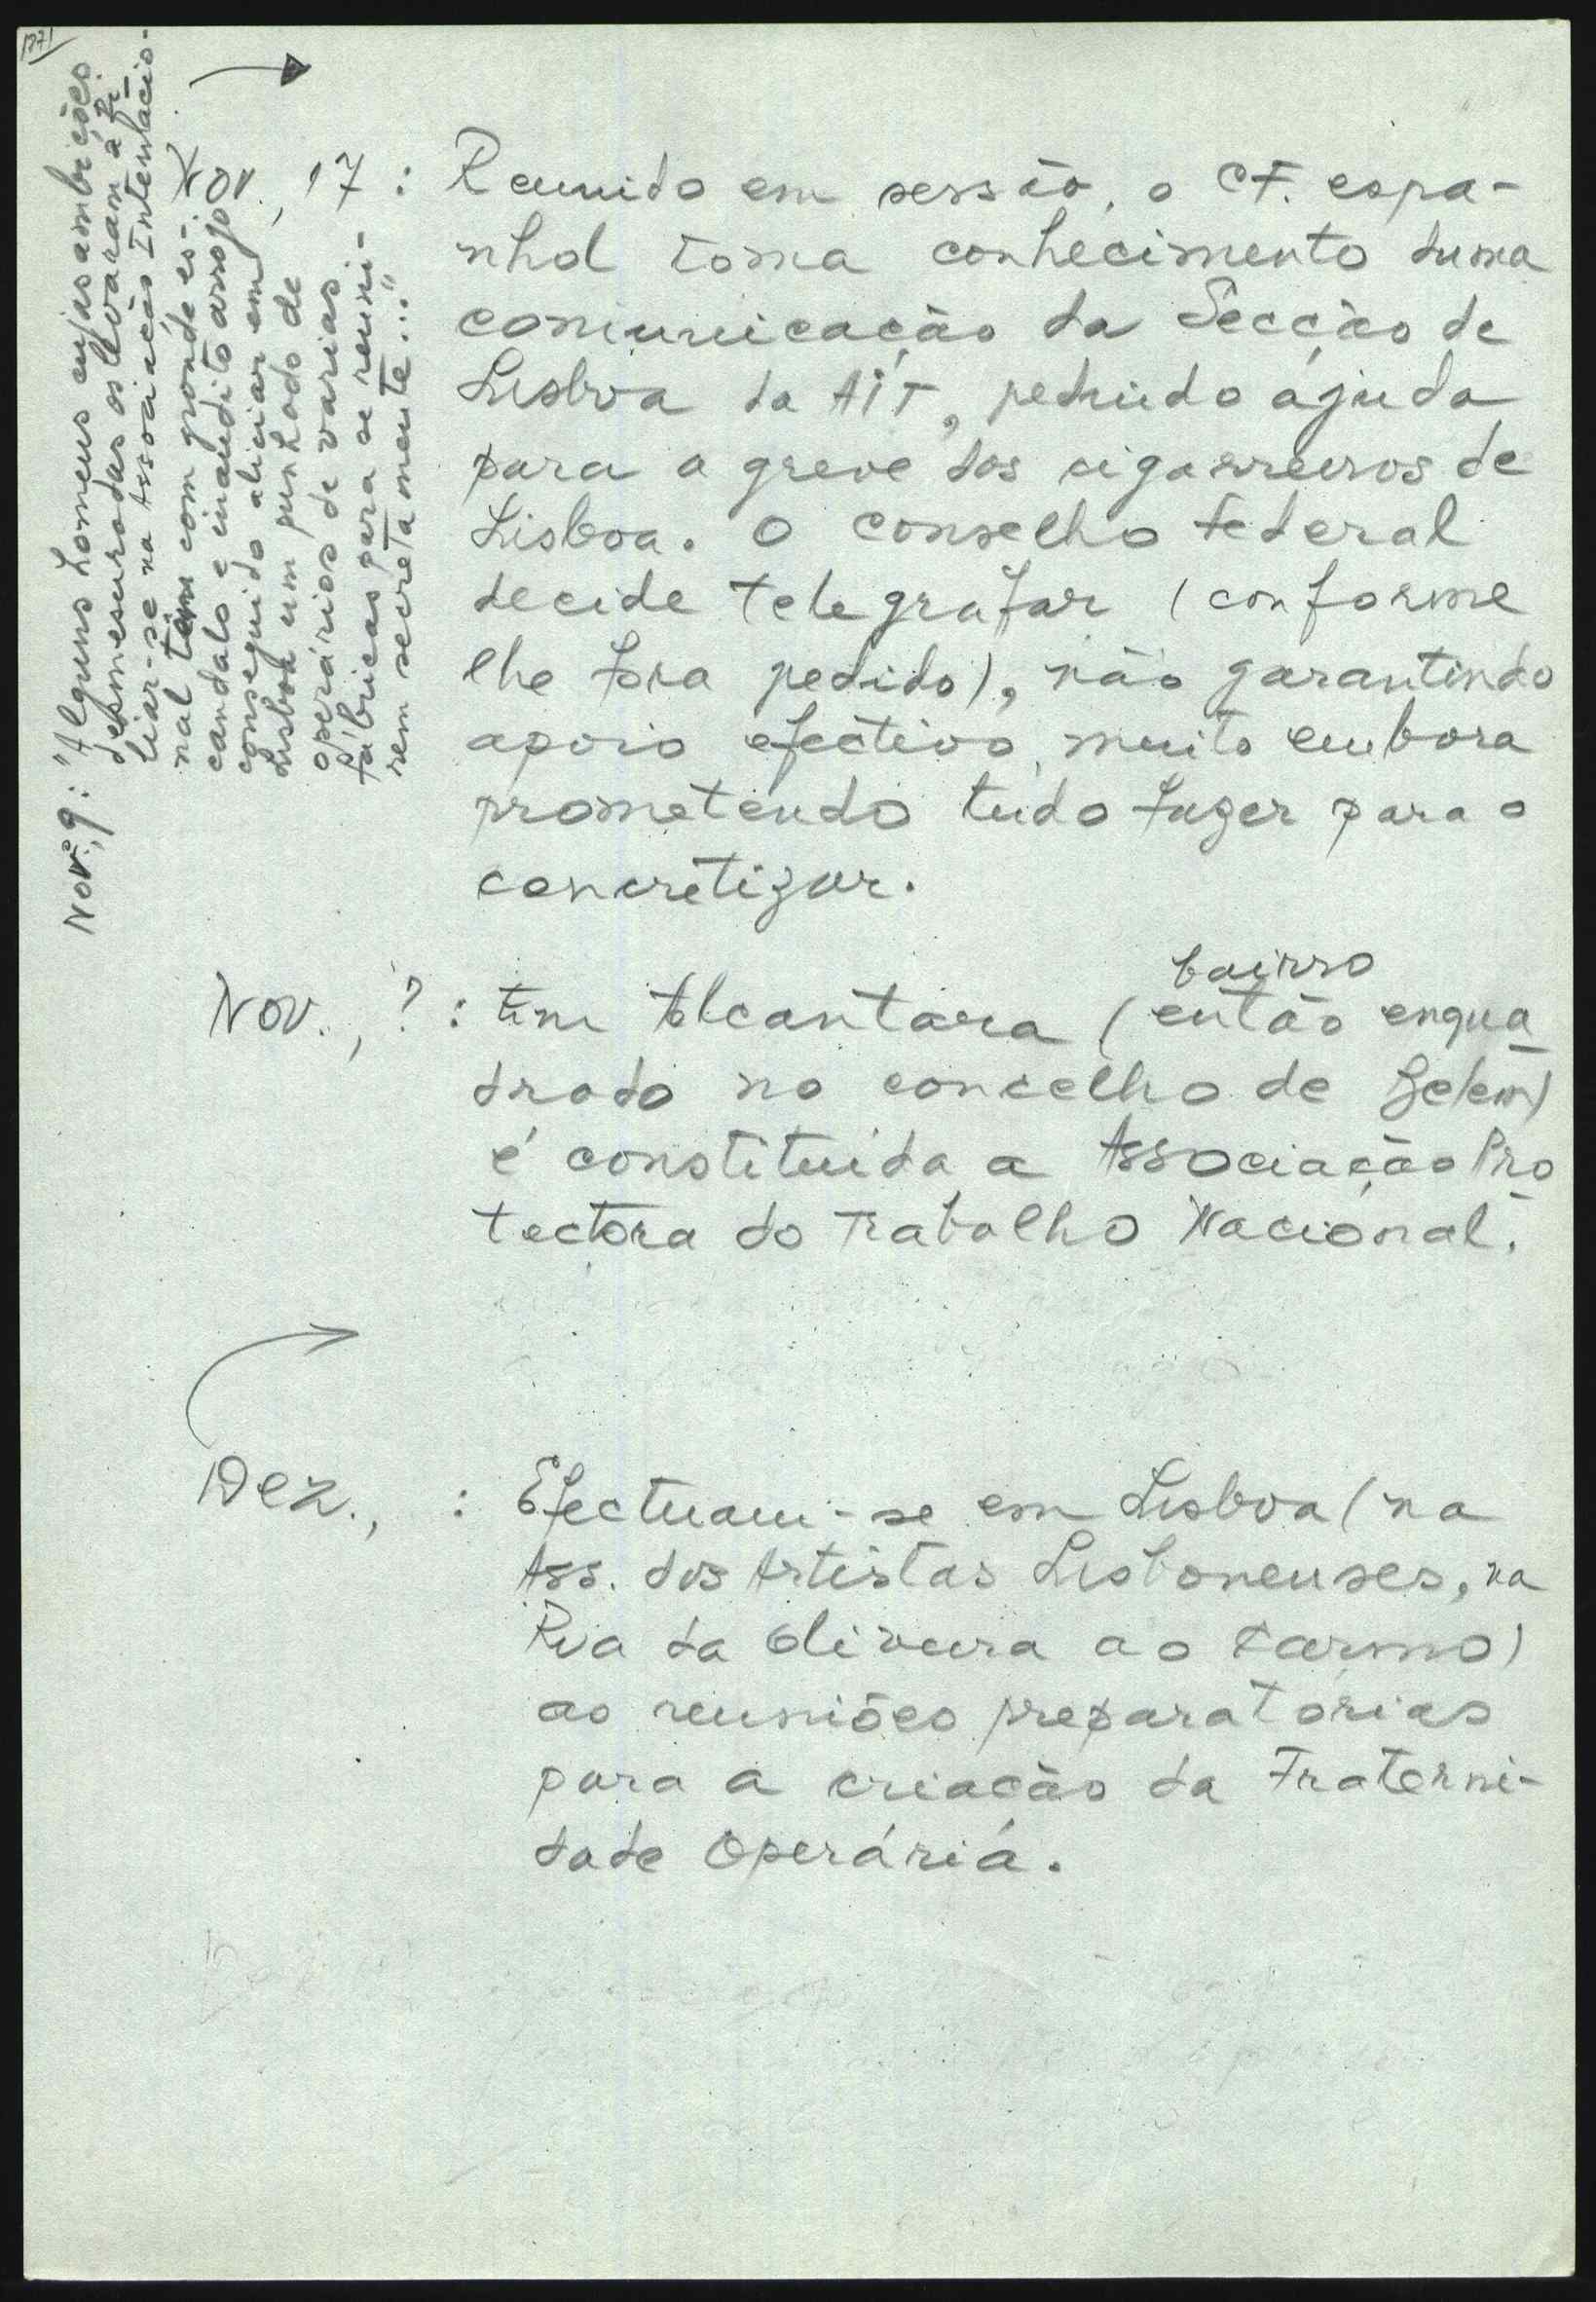 1871
Nov., 9: "Alguns homens cujas ambições
desmesuradas os levaram a fi-
liar-se na Associação Intenlacio-
nal têm com grande es-
candalo e inaudito arrojo
conseguido aliciar em
Lisboa um punhado de
operários de varias
fábricas para se reuni-
rem secretamente..."
Nov., 17: Reunido em sessão, o CF. espa-
nhol toma conhecimento duma
comunicação da Secção de
Lisboa da AIT, pedindo ajuda
para a greve dos cigarreiros de
Lisboa. O Conselho Federal
decide telegrafar (conforme
lhe fora pedido), não garantindo
apoio efectivo, muito embora
prometendo tudo fazer para o
concretizar.
bairro
Nov., ?: Em Alcantara (então enqua
drado no concelho de Belem)
é constituida a Associação Pro
tectora do Trabalho Nacional.
Dez., : Efectuam-se em Lisboa (na
Ass. dos Artistas Lisbonenses, na
Rua da Oliveira ao Carmo)
as reuniões preparatórias
para a criação da Fraterni-
dade Operária.